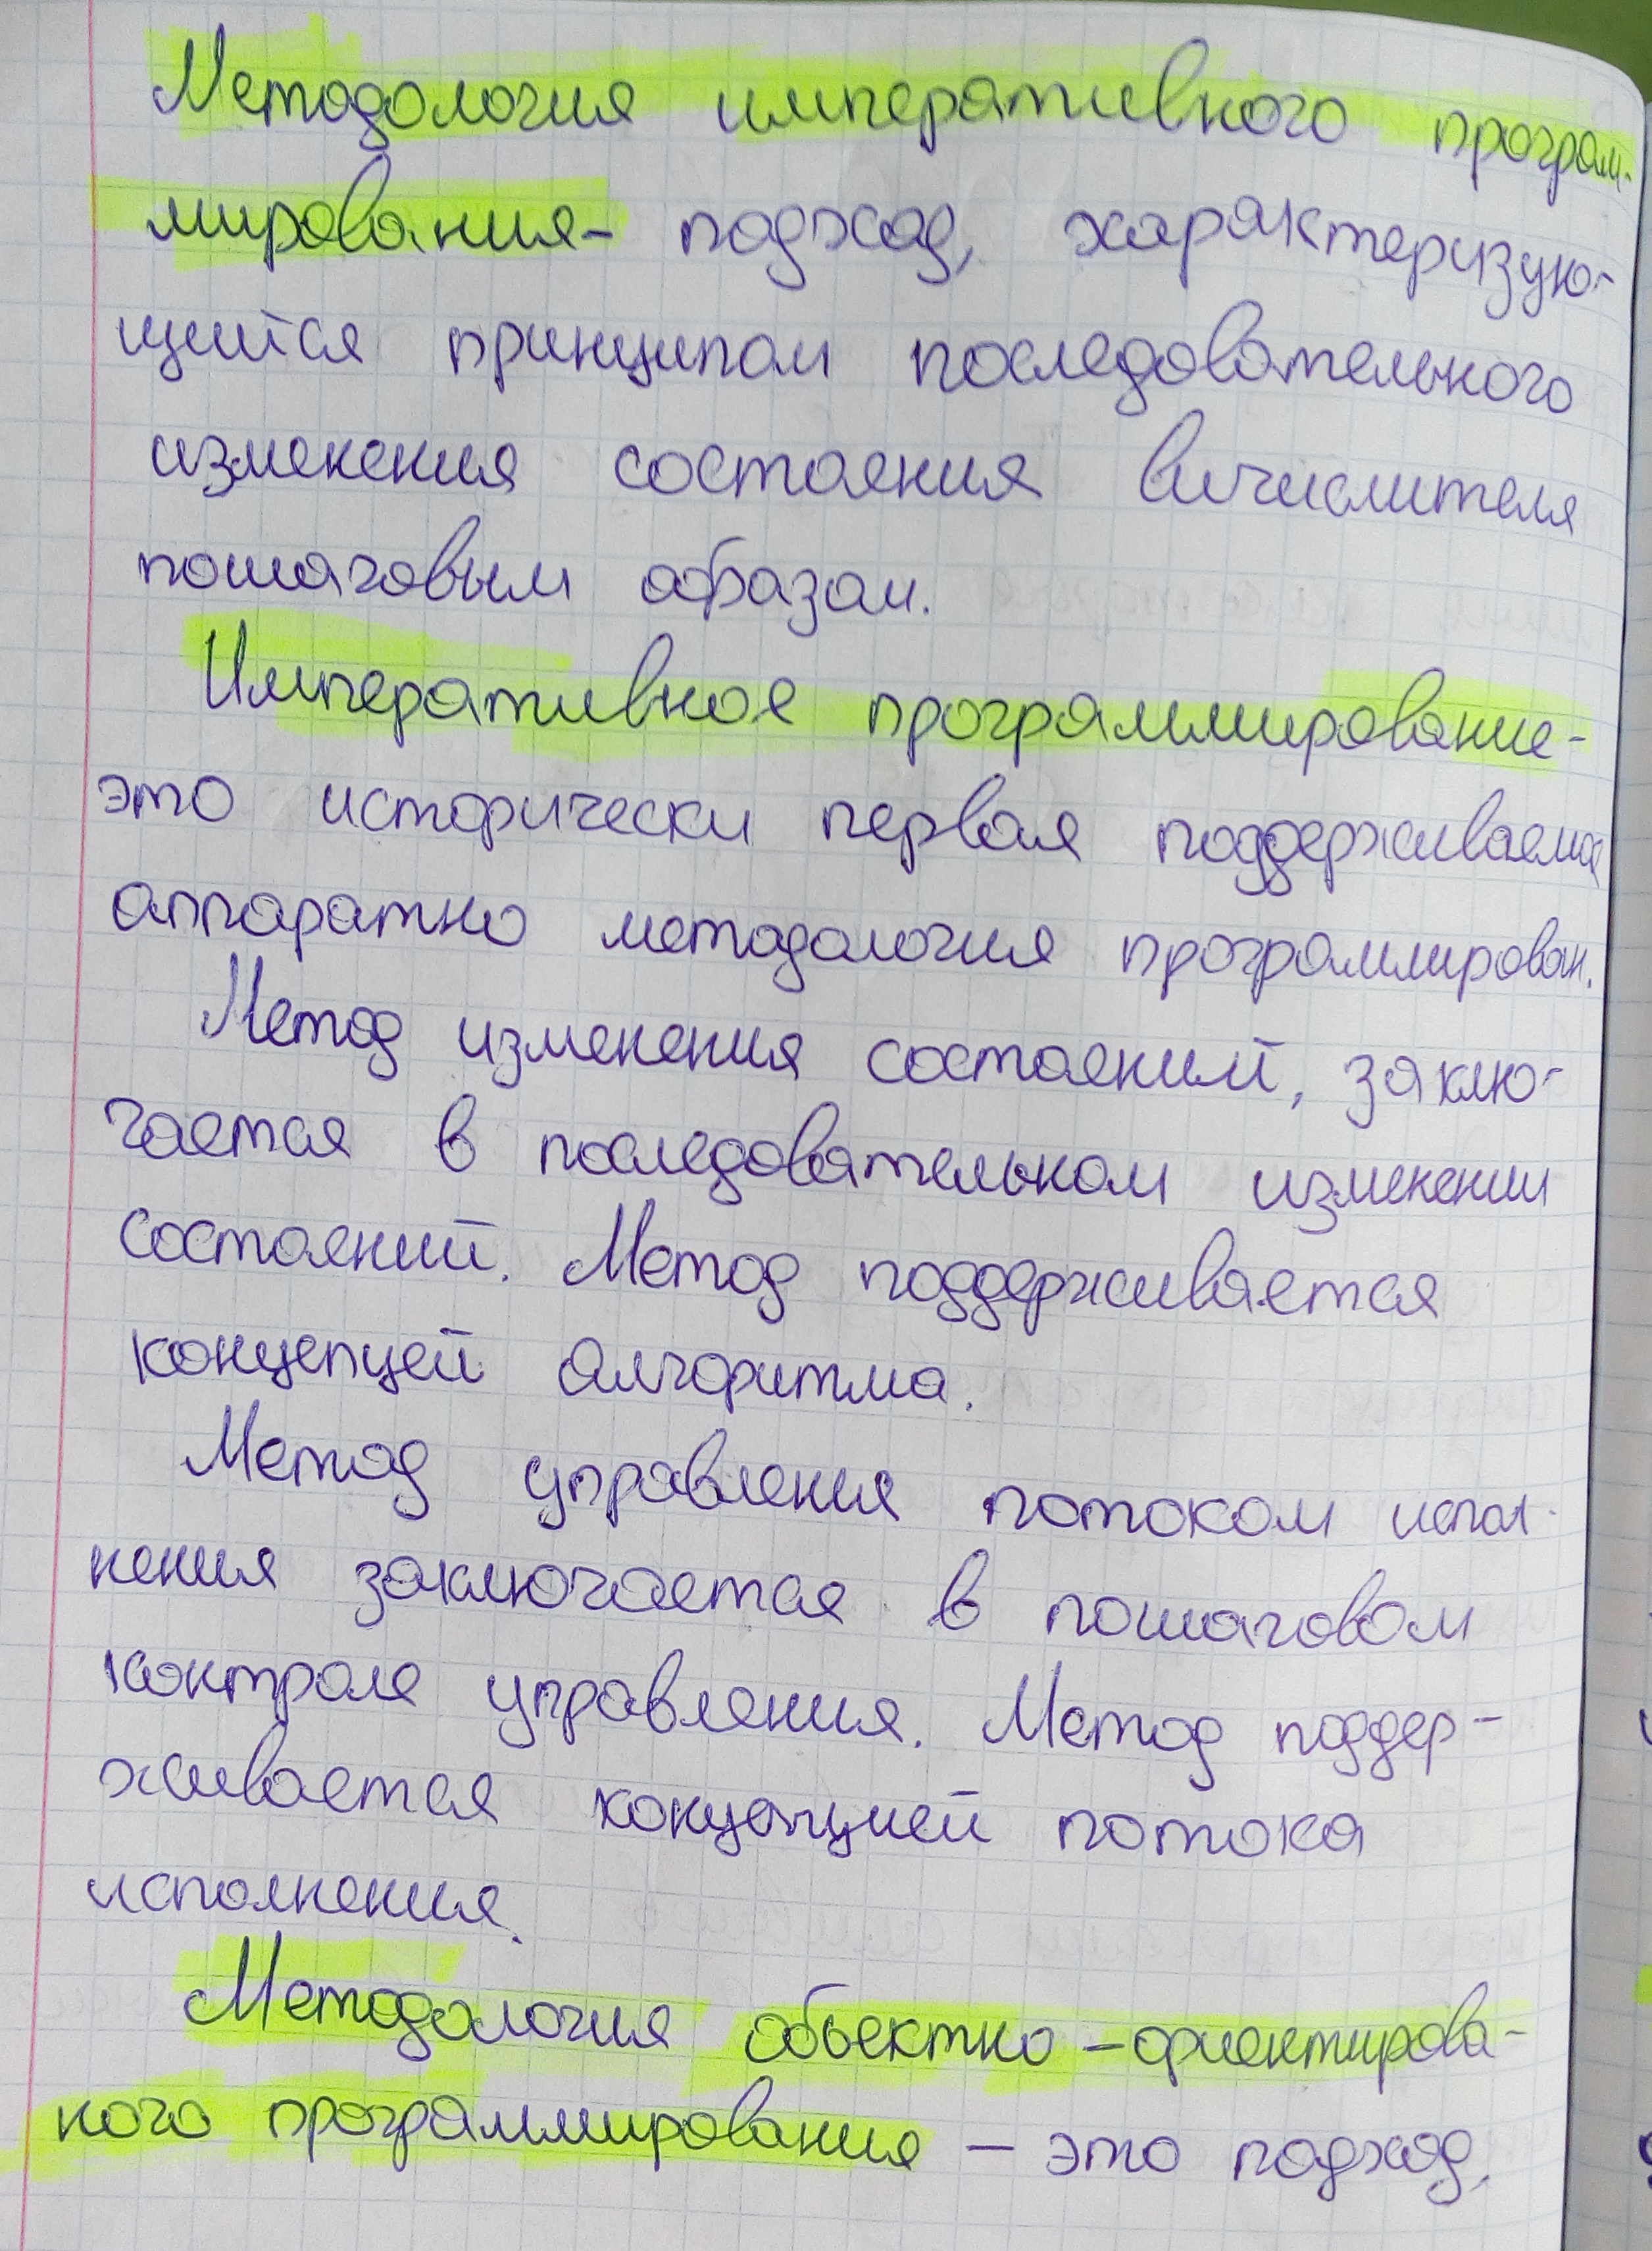 Методология императивного програм-
мирования- подход, характеризую-
щийся принципом последовательного
изменения состояния вичислителя
пошаговым образом.
Императивное программирование-
это исторически первая поддерживаемая
аппаратно методология программирован.
Метод изменения состояний, заклю-
чается в последовательном изменении
состояний. Метод поддерживается
концепцей алгоритма.
Метод управления потоком испол-
нения заключается в пошаговом
контроле управления. Метод поддер-
живается концепцией потока
исполнения.
Методология обьектно-ориентирова-
ного программирования – это подход,